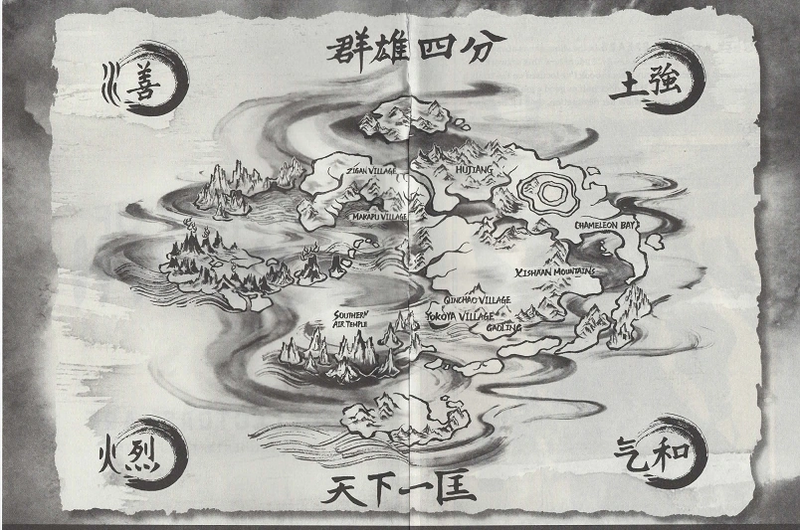 群雄四分
善
土強
ZIGAN VILLAGE
HUJIANG
MAKAPU VILLAGE
CHAMELEON BAY
XISHAAN MOUNTAINS
QINCHAO VILLAGE
SOUTHERN
AIR TEMPLE
YOKOYA VILLAGE
GAOLING
火烈
气和
天下一匡